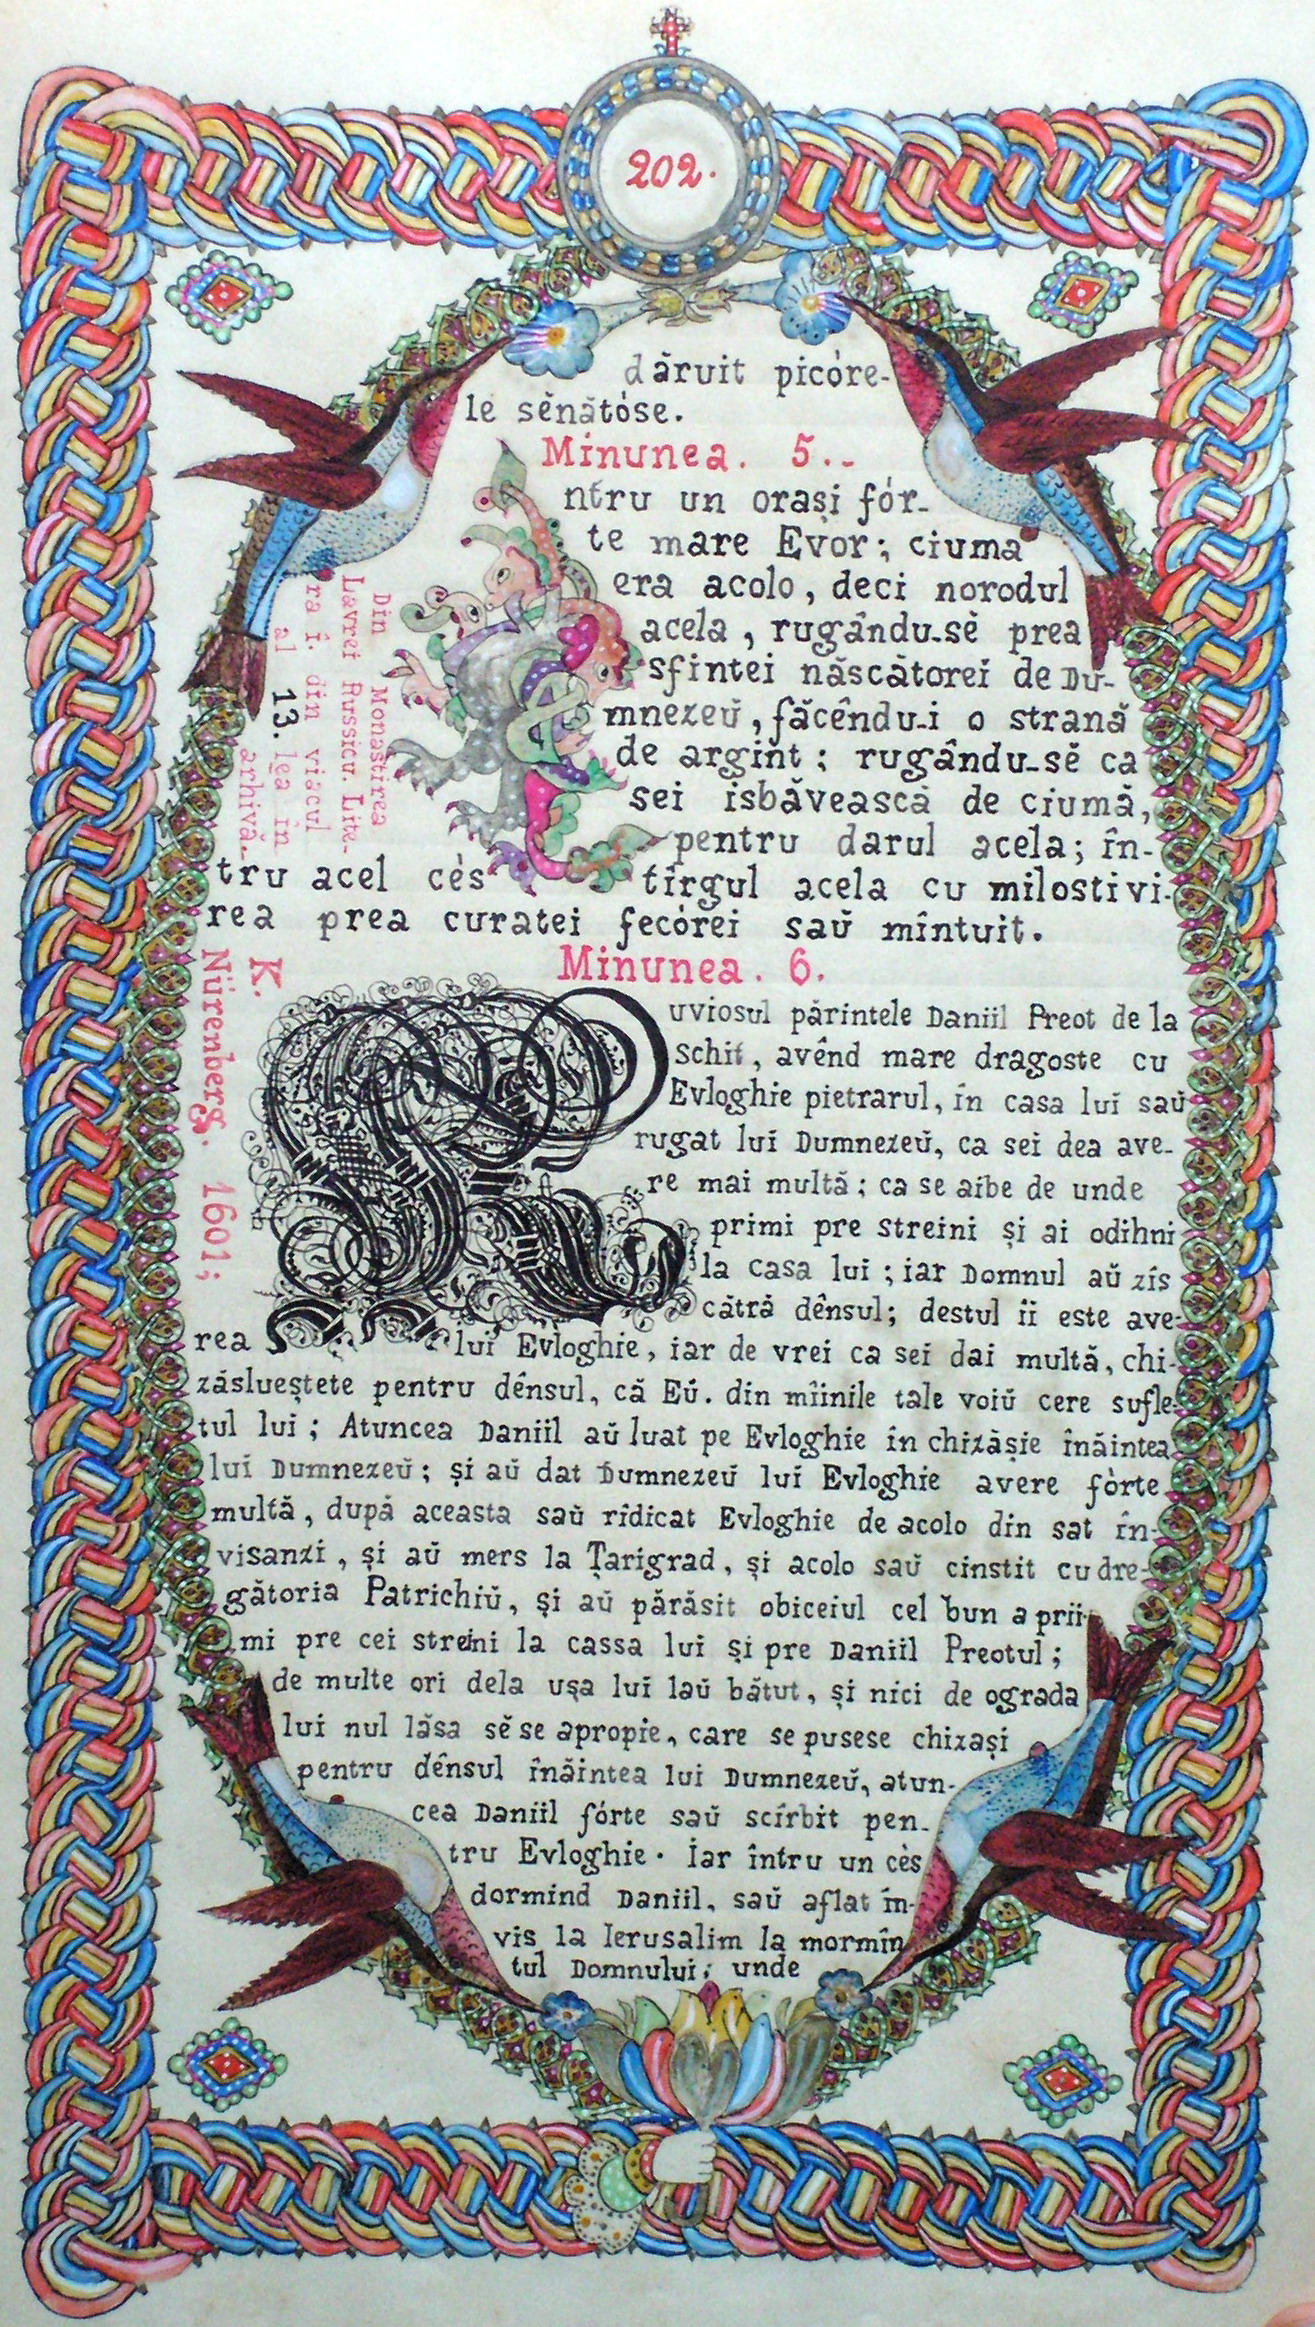 202.
dăruit picóre-
le sĕnătóse.
Minunea. 5.-
ntru un orași fór-
te mare Evor; ciuma
era acolo, deci norodul
acela, rugându-sĕ prea
sfintei născătorei de Du-
mnezeŭ, făcêndu-i o strană
de argint; rugându-sĕ ca
sei isbăvească de ciumă,
pentru darul acela; în-
tru acel cès tîrgul acela cu milostivi-
rea prea curatei fecórei saŭ mîntuit.
Din Monastirea
Lavrei Russicu. Lite-
ra i. din viacul
al 13. lea în
arhivă.
Minunea. 6.
K.
Nürenberg. 1601;
uviosul părintele Daniil Preot de la
schit, avênd mare dragoste cu
Evloghie pietrarul, în casa lui saŭ
rugat lui Dumnezeŭ, ca sei dea ave-
re mai multă; ca se aibe de unde
primi pre streini și ai odihni
la casa lui; iar Domnul aŭ zîs
cătră dênsul; destul îi este ave-
rea lui Evloghie, iar de vrei ca sei dai multă, chi-
záslueștete pentru dênsul, că Eŭ. din mîinile tale voiŭ cere sufle-
tul lui; Atuncea Daniil aŭ luat pe Evloghie în chizășie înăintea
lui Dumnezeŭ; și aŭ dat Dumnezeŭ lui Evloghie avere fòrte
multă, după aceasta saŭ rîdicat Evloghie de acolo din sat în-
visanzi, și aŭ mers la Țarigrad, și acolo saŭ cinstit cu dre-
gătoria Patrichiŭ, și aŭ părăsit obiceiul cel bun a prii-
mi pre cei streini la cassa lui și pre Daniil Preotul;
de multe ori dela ușa lui laŭ bătut, și nici de ograda
lui nul lăsa sĕ se apropie, care se pusese chizași
pentru dênsul înăintea lui Dumnezeŭ, atun-
cea Daniil fórte saŭ scîrbit pen-
tru Evloghie. Iar întru un cès
dormind Daniil, saŭ aflat în-
vis la Ierusalim la mormîn
tul Domnului; unde